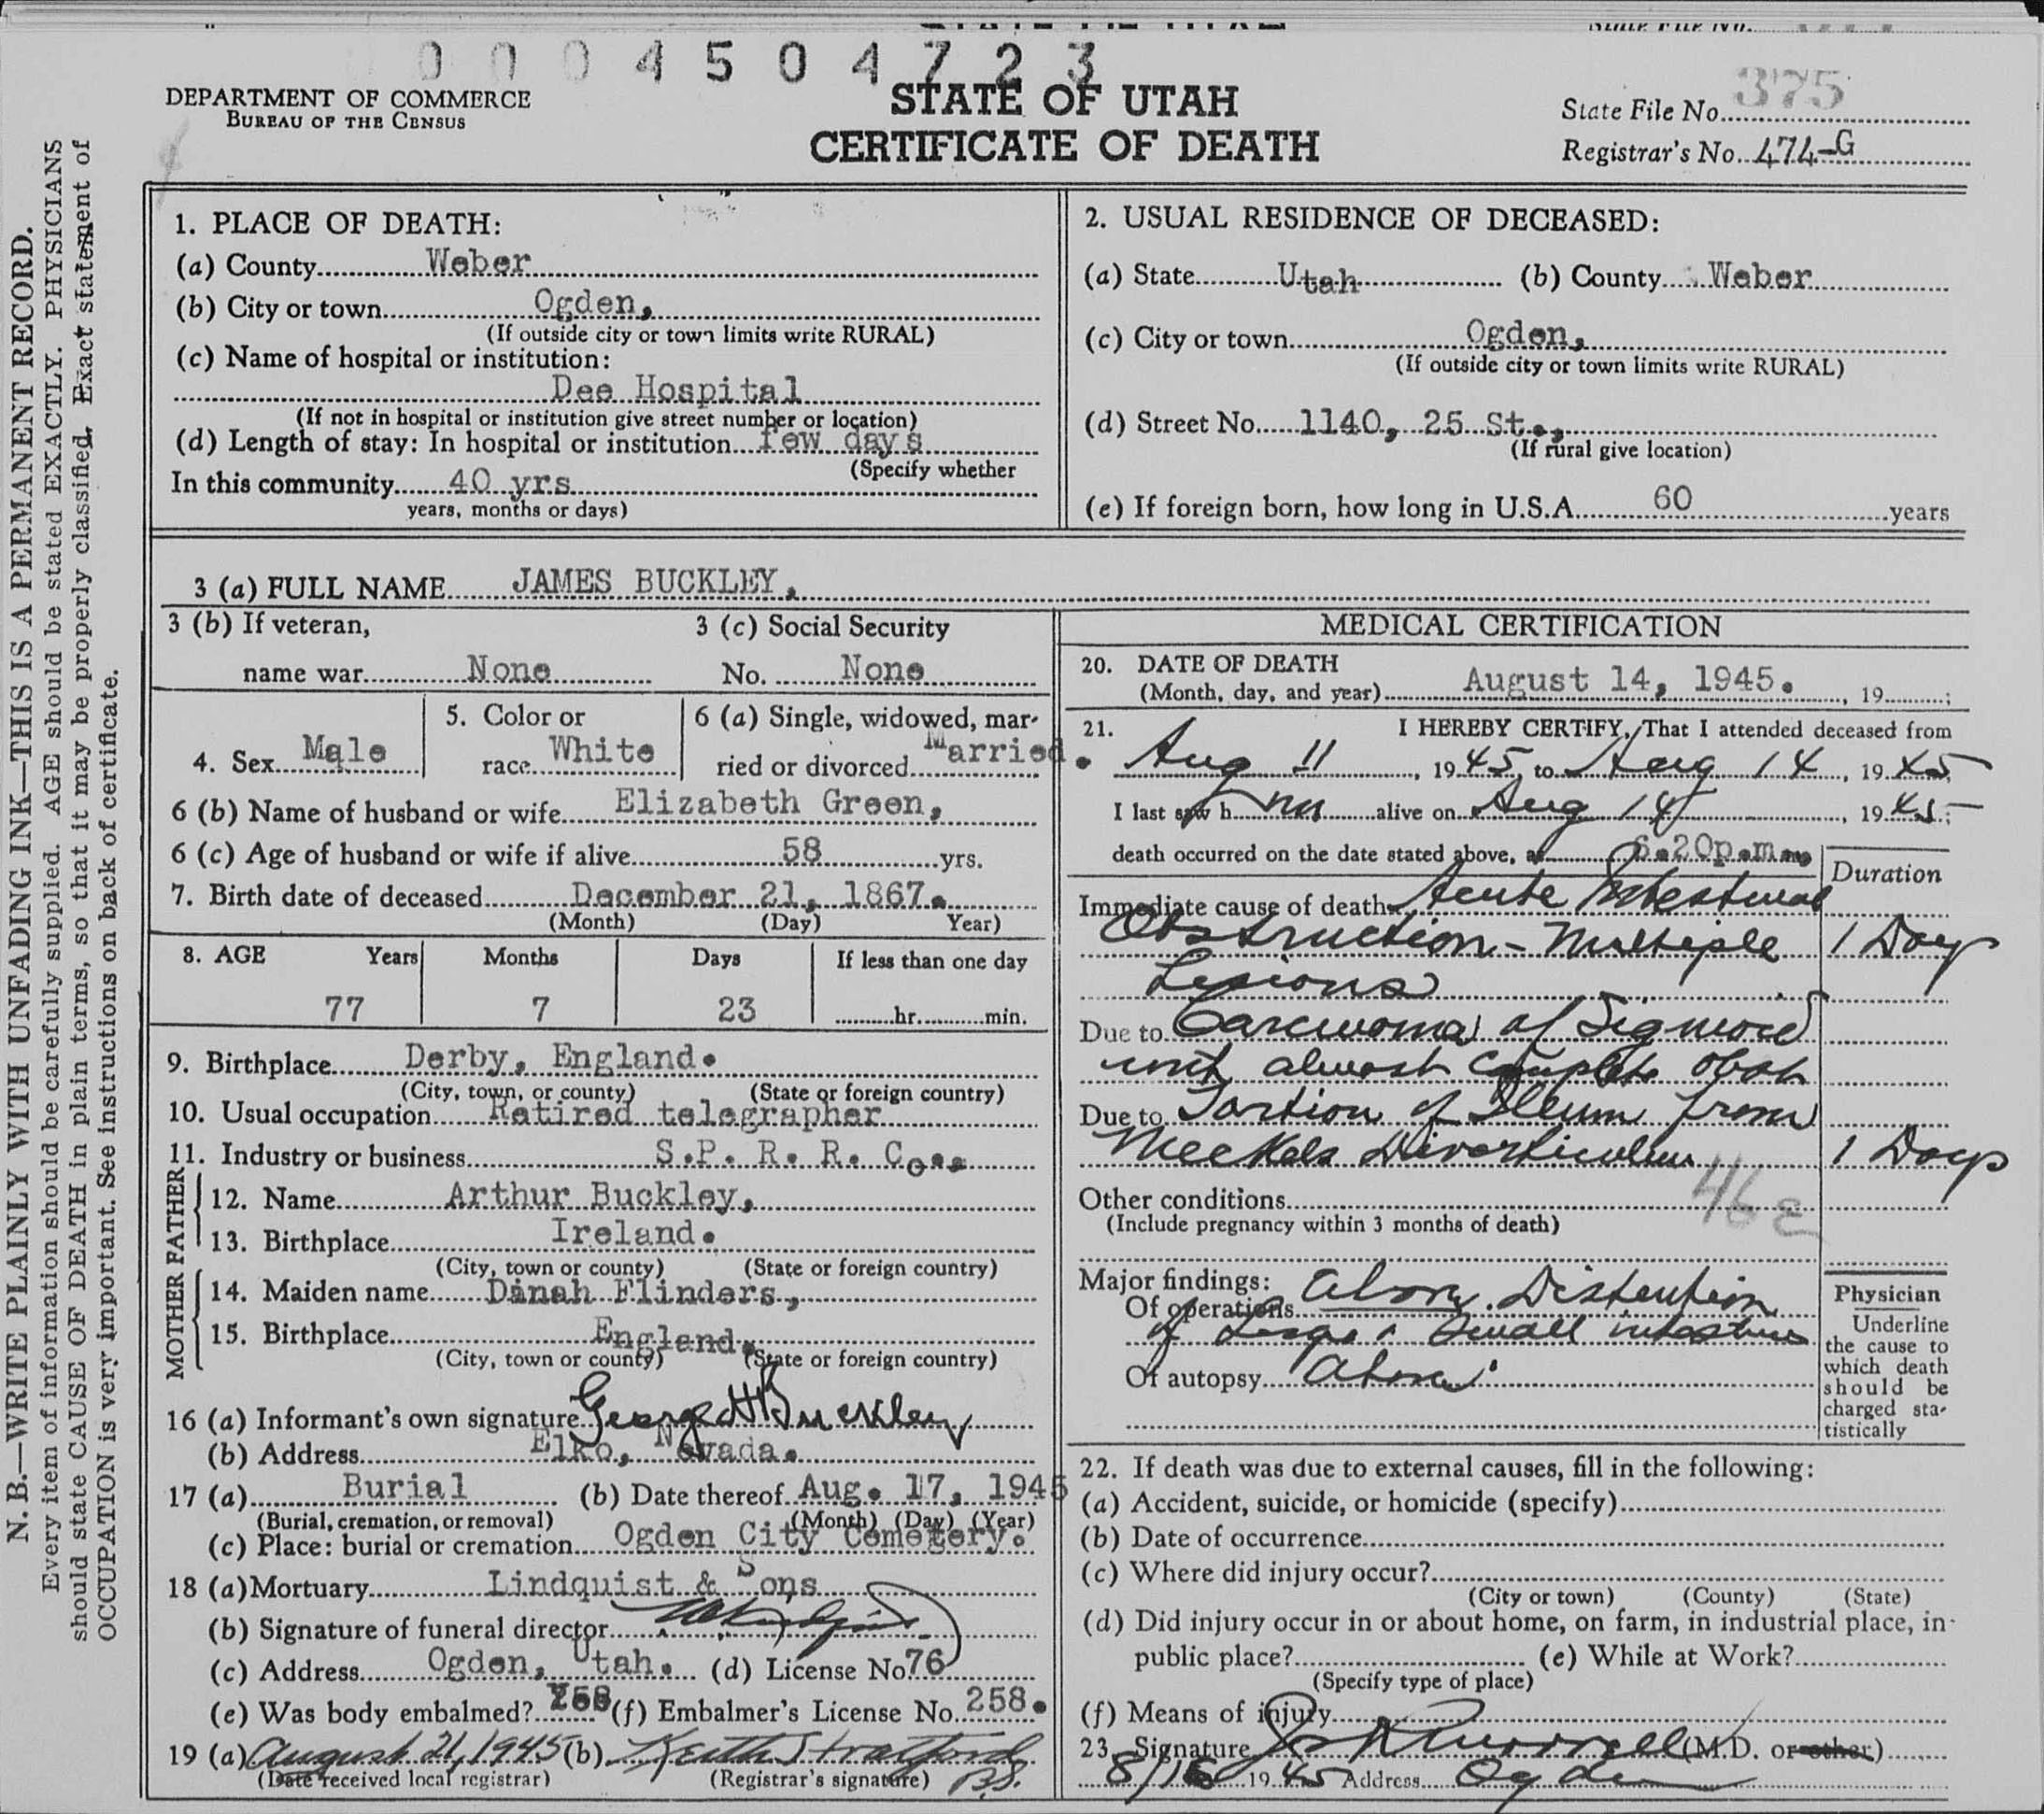 0004504723
DEPARTMENT OF COMMERCE
BUREAU OF THE CENSUS
STATE OF UTAH
CERTIFICATE OF DEATH
State File No. 375
Registrar's No. 474-G
N. B.—WRITE PLAINLY WITH UNFADING INK—THIS IS A PERMANENT RECORD.
Every item of information should be carefully supplied. AGE should be stated EXACTLY. PHYSICIANS
should state CAUSE OF DEATH in plain terms, so that it may be properly classified. Exact statement of
OCCUPATION is very important. See instructions on back of certificate.
1. PLACE OF DEATH:
(a) County Weber
(b) City or town Ogden,
(If outside city or town limits write RURAL)
(c) Name of hospital or institution:
Dee Hospital
(If not in hospital or institution give street number or location)
(d) Length of stay: In hospital or institution few days
(Specify whether
In this community 40 yrs
years, months or days)
2. USUAL RESIDENCE OF DECEASED:
(a) State Utah (b) County Weber
(c) City or town Ogden,
(If outside city or town limits write RURAL)
(d) Street No. 1140, 25 St.,
(If rural give location)
(e) If foreign born, how long in U.S.A. 60 years
3 (a) FULL NAME JAMES BUCKLEY.
3 (b) If veteran, 3 (c) Social Security
name war None No. None
4. Sex Male
5. Color or
race White
6 (a) Single, widowed, mar-
ried or divorced Married.
6 (b) Name of husband or wife Elizabeth Green,
6 (c) Age of husband or wife if alive 58 yrs.
7. Birth date of deceased December 21, 1867.
(Month) (Day) Year)
8. AGE Years Months Days If less than one day
77 7 23 hr. min.
9. Birthplace Derby, England.
(City, town, or county) (State or foreign country)
10. Usual occupation Retired telegrapher
11. Industry or business S.P. R. R. Co.,
FATHER
12. Name Arthur Buckley,
13. Birthplace Ireland.
(City, town or county) (State or foreign country)
MOTHER
14. Maiden name Dinah Flinders,
15. Birthplace England.
(City, town or county) (State or foreign country)
16 (a) Informant's own signature George H Buckley
(b) Address Elko, Nevada.
17 (a) Burial (b) Date thereof Aug. 17, 1945
(Burial, cremation, or removal) (Month) (Day) (Year)
(c) Place: burial or cremation Ogden City Cemetery.
18 (a) Mortuary Lindquist & Sons
(b) Signature of funeral director
(c) Address Ogden, Utah. (d) License No. 76
(e) Was body embalmed? (f) Embalmer's License No. 258.
19 (a) August 21, 1945 (b) Keith Stratford
(Date received local registrar) (Registrar's signature)
MEDICAL CERTIFICATION
20. DATE OF DEATH
(Month, day, and year) August 14, 1945. , 19 ;
21. I HEREBY CERTIFY, That I attended deceased from
Aug 11, 1945, to Aug 14, 1945
I last saw h im alive on Aug 14, 1945;
death occurred on the date stated above, at 6.20p.m.
Duration
Immediate cause of death Acute Intestinal
Obstruction - Multiple 1 Day
Lesions
Due to Carcinoma of Sigmoid
with almost complete obst
Due to Tortion of Ileum from
Meckels Diverticulum 1 Day
Other conditions 46 e
(Include pregnancy within 3 months of death)
Major findings:
Of operations Above. Distention
of Large & Small intestines
Of autopsy Above
Physician
Underline
the cause to
which death
should be
charged sta-
tistically
22. If death was due to external causes, fill in the following:
(a) Accident, suicide, or homicide (specify)
(b) Date of occurrence
(c) Where did injury occur?
(City or town) (County) (State)
(d) Did injury occur in or about home, on farm, in industrial place, in
public place? (e) While at Work?
(Specify type of place)
(f) Means of injury
23. Signature (M.D. or other)
8/16 1945 Address Ogden